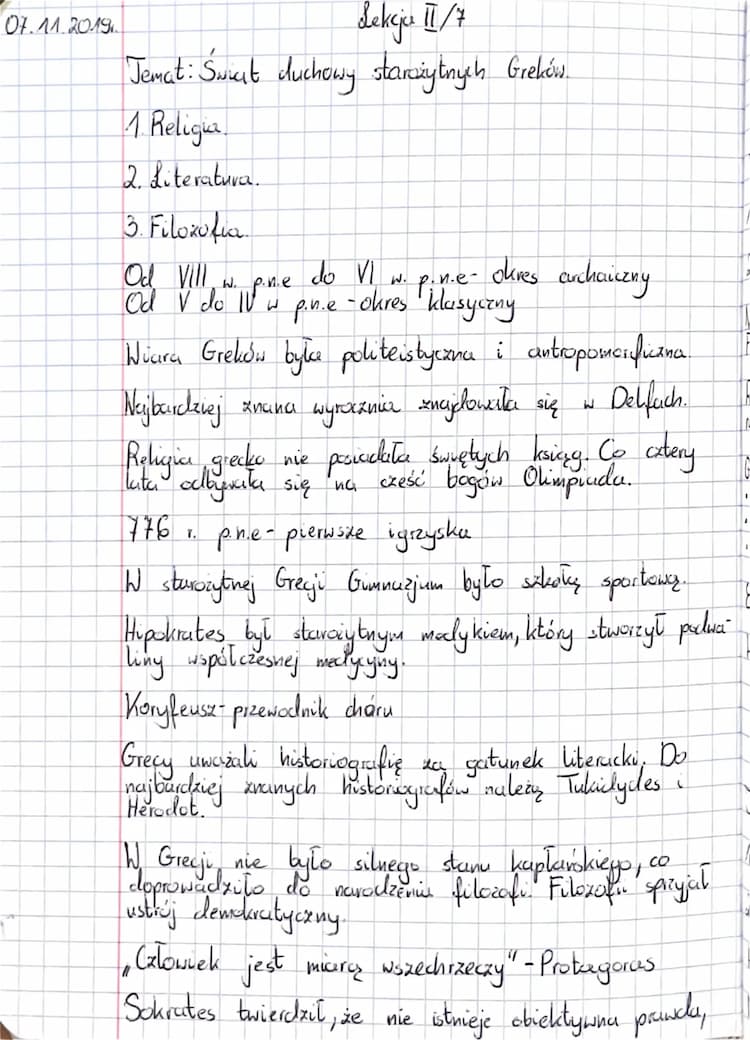 07.11.2019r.
Lekcja II/7
Temat: Świat duchowy starożytnych Greków.
1. Religia.
2. Literatura.
3. Filozofia.
Od VIII w. p.n.e do VI w. p.n.e- okres archaiczny
Od V do IV w p.n.e - okres klasyczny
Wiara Greków była politeistyczna i antropomorficzna.
Najbardziej znana wyrocznia znajdowała się w Delfach.
Religia grecka nie posiadała świętych ksiąg. Co cztery
lata odbywała się na cześć bogów Olimpiada.
776 r. p.n.e- pierwsze igrzyska
W starożytnej Grecji Gimnazjum było szkołą sportową.
Hipokrates był starożytnym medykiem, który stworzył podwa-
liny współczesnej medycyny.
Koryfeusz- przewodnik chóru
Grecy uważali historiografię za gatunek literacki. Do
najbardziej znanych historiografów należą Tukidydes i
Herodot.
W Grecji nie było silnego stanu kapłańskiego, co
doprowadziło do narodzenia filozofi. Filozofii sprzyjał
ustrój demokratyczny.
„Człowiek jest miarą wszechrzeczy" - Protagoras
Sokrates twierdził, że nie istnieje obiektywna prawda,